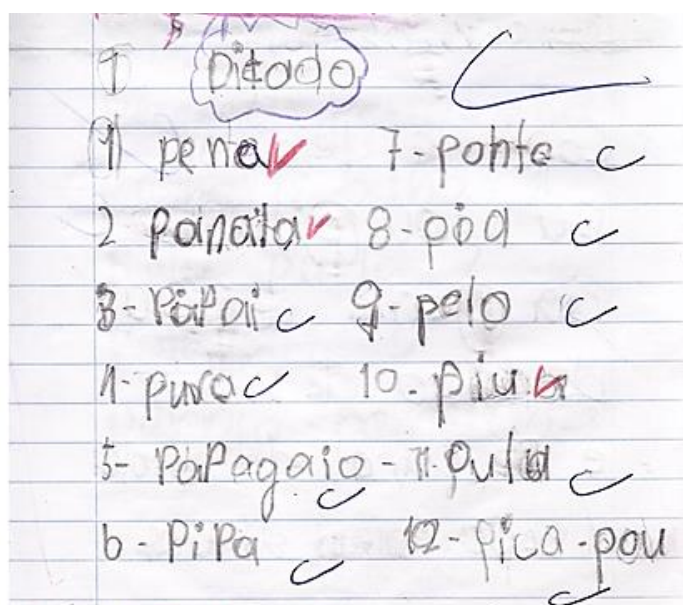 1 Ditado
1) pena 7-ponte
2 panaita 8-pia
3-PaPai 9-pelo
4-pura 10-piu
5-PaPagaio-11-Pula
6-PiPa 12-pica-pau